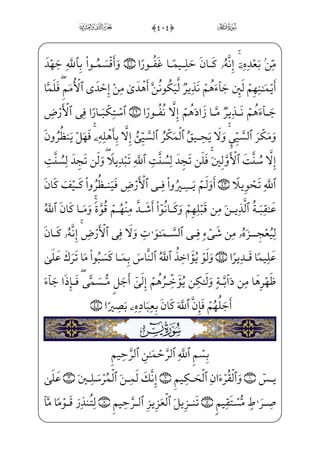 ﴿٤٠٤﴾
مِّنۢ بَعْدِهِۦٓ ۚ إِنَّهُۥ كَانَ حَلِيمًا غَفُورًا ۝٤١ وَأَقْسَمُوا۟ بِٱللَّهِ جَهْدَ
أَيْمَٰنِهِمْ لَئِن جَآءَهُمْ نَذِيرٌ لَّيَكُونُنَّ أَهْدَىٰ مِنْ إِحْدَى ٱلْأُمَمِ ۖ فَلَمَّا
جَآءَهُمْ نَذِيرٌ مَّا زَادَهُمْ إِلَّا نُفُورًا ۝٤٢ ٱسْتِكْبَارًا فِى ٱلْأَرْضِ
وَمَكْرَ ٱلسَّيِّئِ ۚ وَلَا يَحِيقُ ٱلْمَكْرُ ٱلسَّيِّئُ إِلَّا بِأَهْلِهِۦ ۚ فَهَلْ يَنظُرُونَ
إِلَّا سُنَّتَ ٱلْأَوَّلِينَ ۚ فَلَن تَجِدَ لِسُنَّتِ ٱللَّهِ تَبْدِيلًا ۖ وَلَن تَجِدَ لِسُنَّتِ
ٱللَّهِ تَحْوِيلًا ۝٤٣ أَوَلَمْ يَسِيرُوا۟ فِى ٱلْأَرْضِ فَيَنظُرُوا۟ كَيْفَ كَانَ
عَٰقِبَةُ ٱلَّذِينَ مِن قَبْلِهِمْ وَكَانُوٓا۟ أَشَدَّ مِنْهُمْ قُوَّةً ۚ وَمَا كَانَ ٱللَّهُ
لِيُعْجِزَهُۥ مِن شَىْءٍ فِى ٱلسَّمَٰوَٰتِ وَلَا فِى ٱلْأَرْضِ ۚ إِنَّهُۥ كَانَ
عَلِيمًا قَدِيرًا ۝٤٤ وَلَوْ يُؤَاخِذُ ٱللَّهُ ٱلنَّاسَ بِمَا كَسَبُوا۟ مَا تَرَكَ عَلَىٰ
ظَهْرِهَا مِن دَآبَّةٍ وَلَٰكِن يُؤَخِّرُهُمْ إِلَىٰٓ أَجَلٍ مُّسَمًّى ۖ فَإِذَا جَآءَ
أَجَلُهُمْ فَإِنَّ ٱللَّهَ كَانَ بِعِبَادِهِۦ بَصِيرًۢا ۝٤٥
بِسْمِ ٱللَّهِ ٱلرَّحْمَٰنِ ٱلرَّحِيمِ
يسٓ ۝١ وَٱلْقُرْءَانِ ٱلْحَكِيمِ ۝٢ إِنَّكَ لَمِنَ ٱلْمُرْسَلِينَ ۝٣ عَلَىٰ
صِرَٰطٍ مُّسْتَقِيمٍ ۝٤ تَنزِيلَ ٱلْعَزِيزِ ٱلرَّحِيمِ ۝٥ لِتُنذِرَ قَوْمًا مَّآ